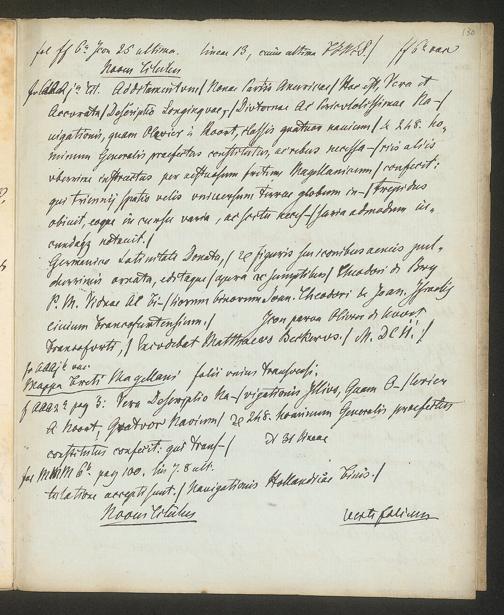 130
fol ff 6ᵃ Icon 25 ultima. lineae 13, cuius ultima / ff 6ᵃ vae
Novus titulus
fo AAA jᵃ tit. Additamentum / Nonae Partis Americae / Hoc est, Vera et
Accurata / Descriptio Longinquae, / Diuturnae Ac Periculosissimae Na-/
vigationis, quam Olevier à Noort, classis quatuor navium / & 248. ho-
minum Generalis praefectus constitutus, ac rebus necessa-/riis aliis
uberrime instructus per aestuosum fretum Magellanicum / confecit:
qui triennij spatio velis universum Terrae globum in-/trepidus
obivit, eoque in cursu varia, ac scitu necess-/saria admodum iu-
cundaq; notavit. /
Germanice Latinitate Donata, / & figuris seu iconibus aeneis pul-
cherrimis ornata, editaque / opera & sumptibus / Theodori de Bry
P. M. Viduae et fi-/liorum binorum Joan. Theodori & Joan. Israelis
civium Francofurtensium. / Icon parva Olivier de Noort
Francoforti, / Excudebat Matthaeus Beckerus. / M. DCII. /
fo AAA jᵃ vae
Mappa Freti Magellani folii unius transversi.
f AAA2ᵃ pag 3: Vera Descriptio Na-/vigationis Illius, Quam O-/levier
A Noort, Quatvor Navium / & 248. hominum Generalis praefectus
constitutus confecit: qui trans-/ & 31 lineae
fo MMM 6ᵇ pag 100. lin 7. 8 ult.
tulatione accepti sunt. / Navigationis Hollandicae Finis. /
Novus titulus
verte folium